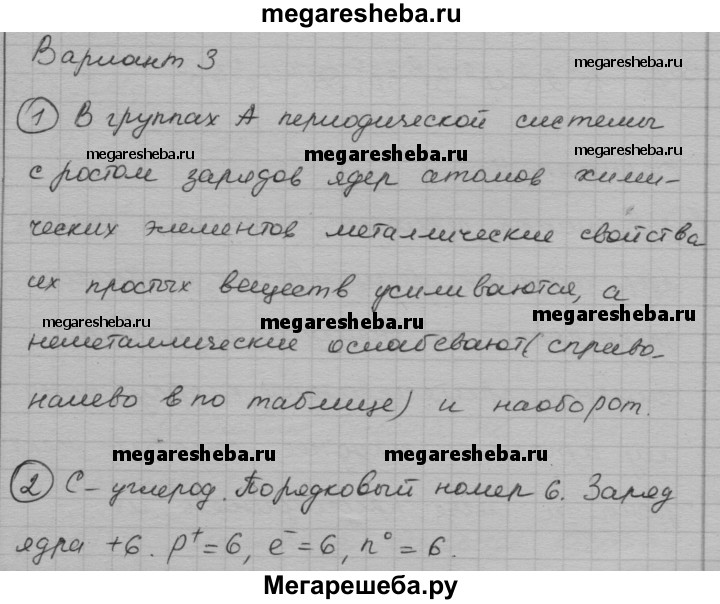 megaresheba.ru
Вариант 3
megaresheba.ru
1 В группах А периодической системы
megaresheba.ru megaresheba.ru megaresheba.ru
с ростом зарядов ядер атомов хими-
ческих элементов металлические свойства
их простых веществ усиливаются, а
megaresheba.ru megaresheba.ru megaresheba.ru
неметаллические ослабевают (справо-
налево в по таблице) и наоборот.
megaresheba.ru megaresheba.ru
2 С – углерод. Порядковый номер 6. Заряд
ядра +6. p⁺ = 6, e⁻ = 6, n⁰ = 6.
Мегарешеба.ру